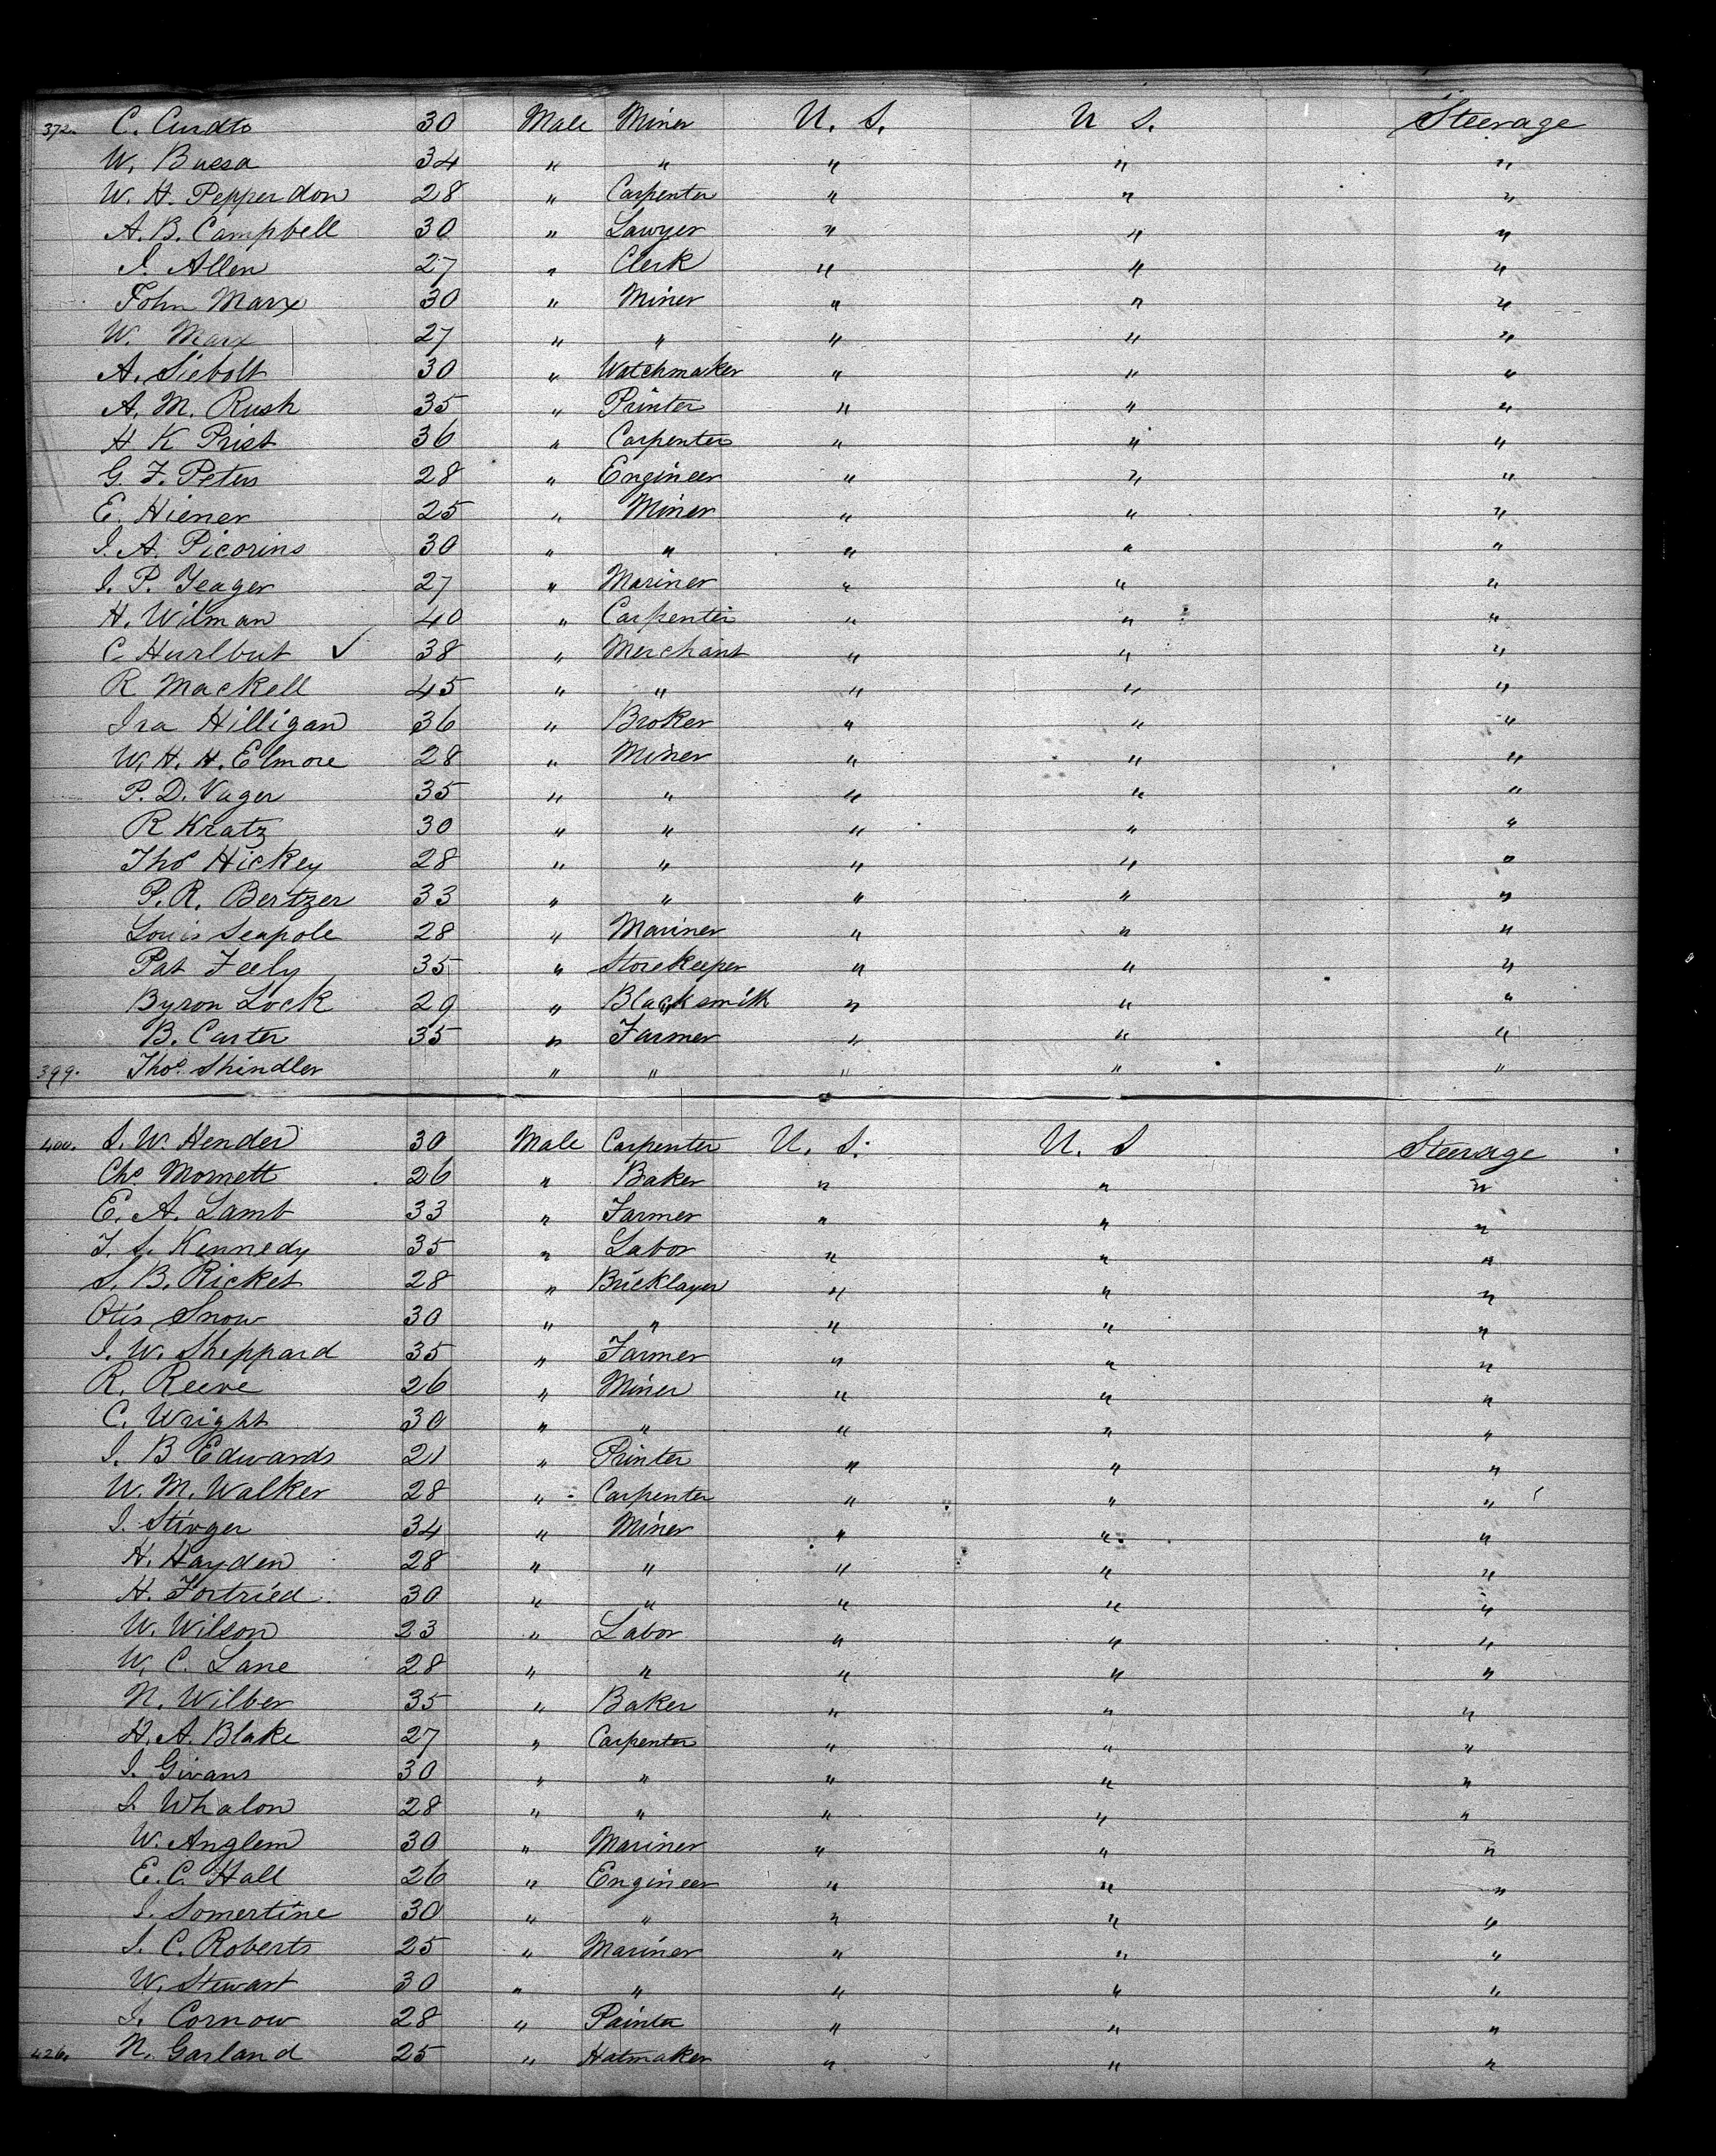 372. C. Curdts 30 Male Miner U. S. U S. Steerage
W. Bussa 34 " " " " "
W. H. Pepperdon 28 " Carpenter " " "
A. B. Campbell 30 " Lawyer " " "
I. Allen 27 " Clerk " " "
John Marx 30 " Miner " " "
W. Marx 27 " " " " "
A. Siebolt 30 " Watchmaker " " "
A. M. Rush 35 " Printer " " "
H K Prist 36 " Carpenter " " "
G. F. Peters 28 " Engineer " " "
E. Hiener 25 " Miner " " "
I. A. Picorins 30 " " " " "
I. P. Yeager 27 " Mariner " " "
H. Wilman 40 " Carpenter " " "
C Hurlbut ✓ 38 " Merchant " " "
R Mackell 45 " " " " "
Ira Hilligan 36 " Broker " " "
W. H. H. Elmore 28 " Miner " " "
P. D. Vager 35 " " " " "
R Kratz 30 " " " " "
Thos Hickey 28 " " " " "
P. R. Bertzer 33 " " " " "
Louis Seapole 28 " Mariner " " "
Pat Feely 35 " Storekeeper " " "
Byron Lock 29 " Blacksmith " " "
B. Carter 35 " Farmer " " "
399. Thos. Shindler " " " " "
400. S. W. Hender 30 Male Carpenter U. S. U. S Steerage
Chs Mornett 26 " Baker " " "
E. A. Lamb 33 " Farmer " " "
T. S. Kennedy 35 " Labor " " "
S. B. Ricket 28 " Bricklayer " " "
Otis Snow 30 " " " " "
I. W. Sheppard 35 " Farmer " " "
R. Reeve 26 " Miner " " "
C. Wright 30 " " " " "
I. B Edwards 21 " Printer " " "
W. M. Walker 28 " Carpenter " " "
I. Stivger 34 " Miner " " "
H. Hayden 28 " " " " "
H. Fortried 30 " " " " "
W. Wilson 23 " Labor " " "
W. C. Lane 28 " " " " "
N. Wilber 35 " Baker " " "
H. A. Blake 27 " Carpenter " " "
I. Givans 30 " " " " "
I. Whalon 28 " " " " "
W. Anglem 30 " Mariner " " "
E. C. Hall 26 " Engineer " " "
I. Somertine 30 " " " " "
I. C. Roberts 25 " Mariner " " "
W. Stewart 30 " " " " "
I. Cornow 28 " Painter " " "
426. N. Garland 25 " Hatmaker " " "